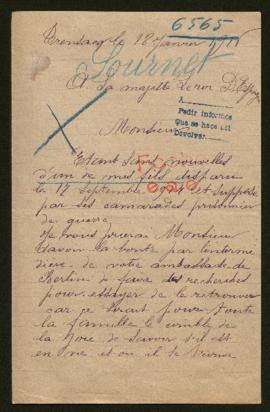 6565
le 18 Janvier 1915
Sournet
A Sa majesté le roi D'Espagne
A
Pedir informes
Que se hace así
Devolver
Monsieur
Etant sans nouvelles
d'un de mes fils disparu
le 17 Septembre et supposé
par ses camarades prisonnier
de guerre
Je vous prierai Monsieur
d'avoir la bonté par l'interme
dière de votre ambassade de
Berlin de faire des recherches
pour essayer de le retrouver
car ce serait pour toute
la famille le comble de
la joie de savoir s'il est
en vie et où il se trouve